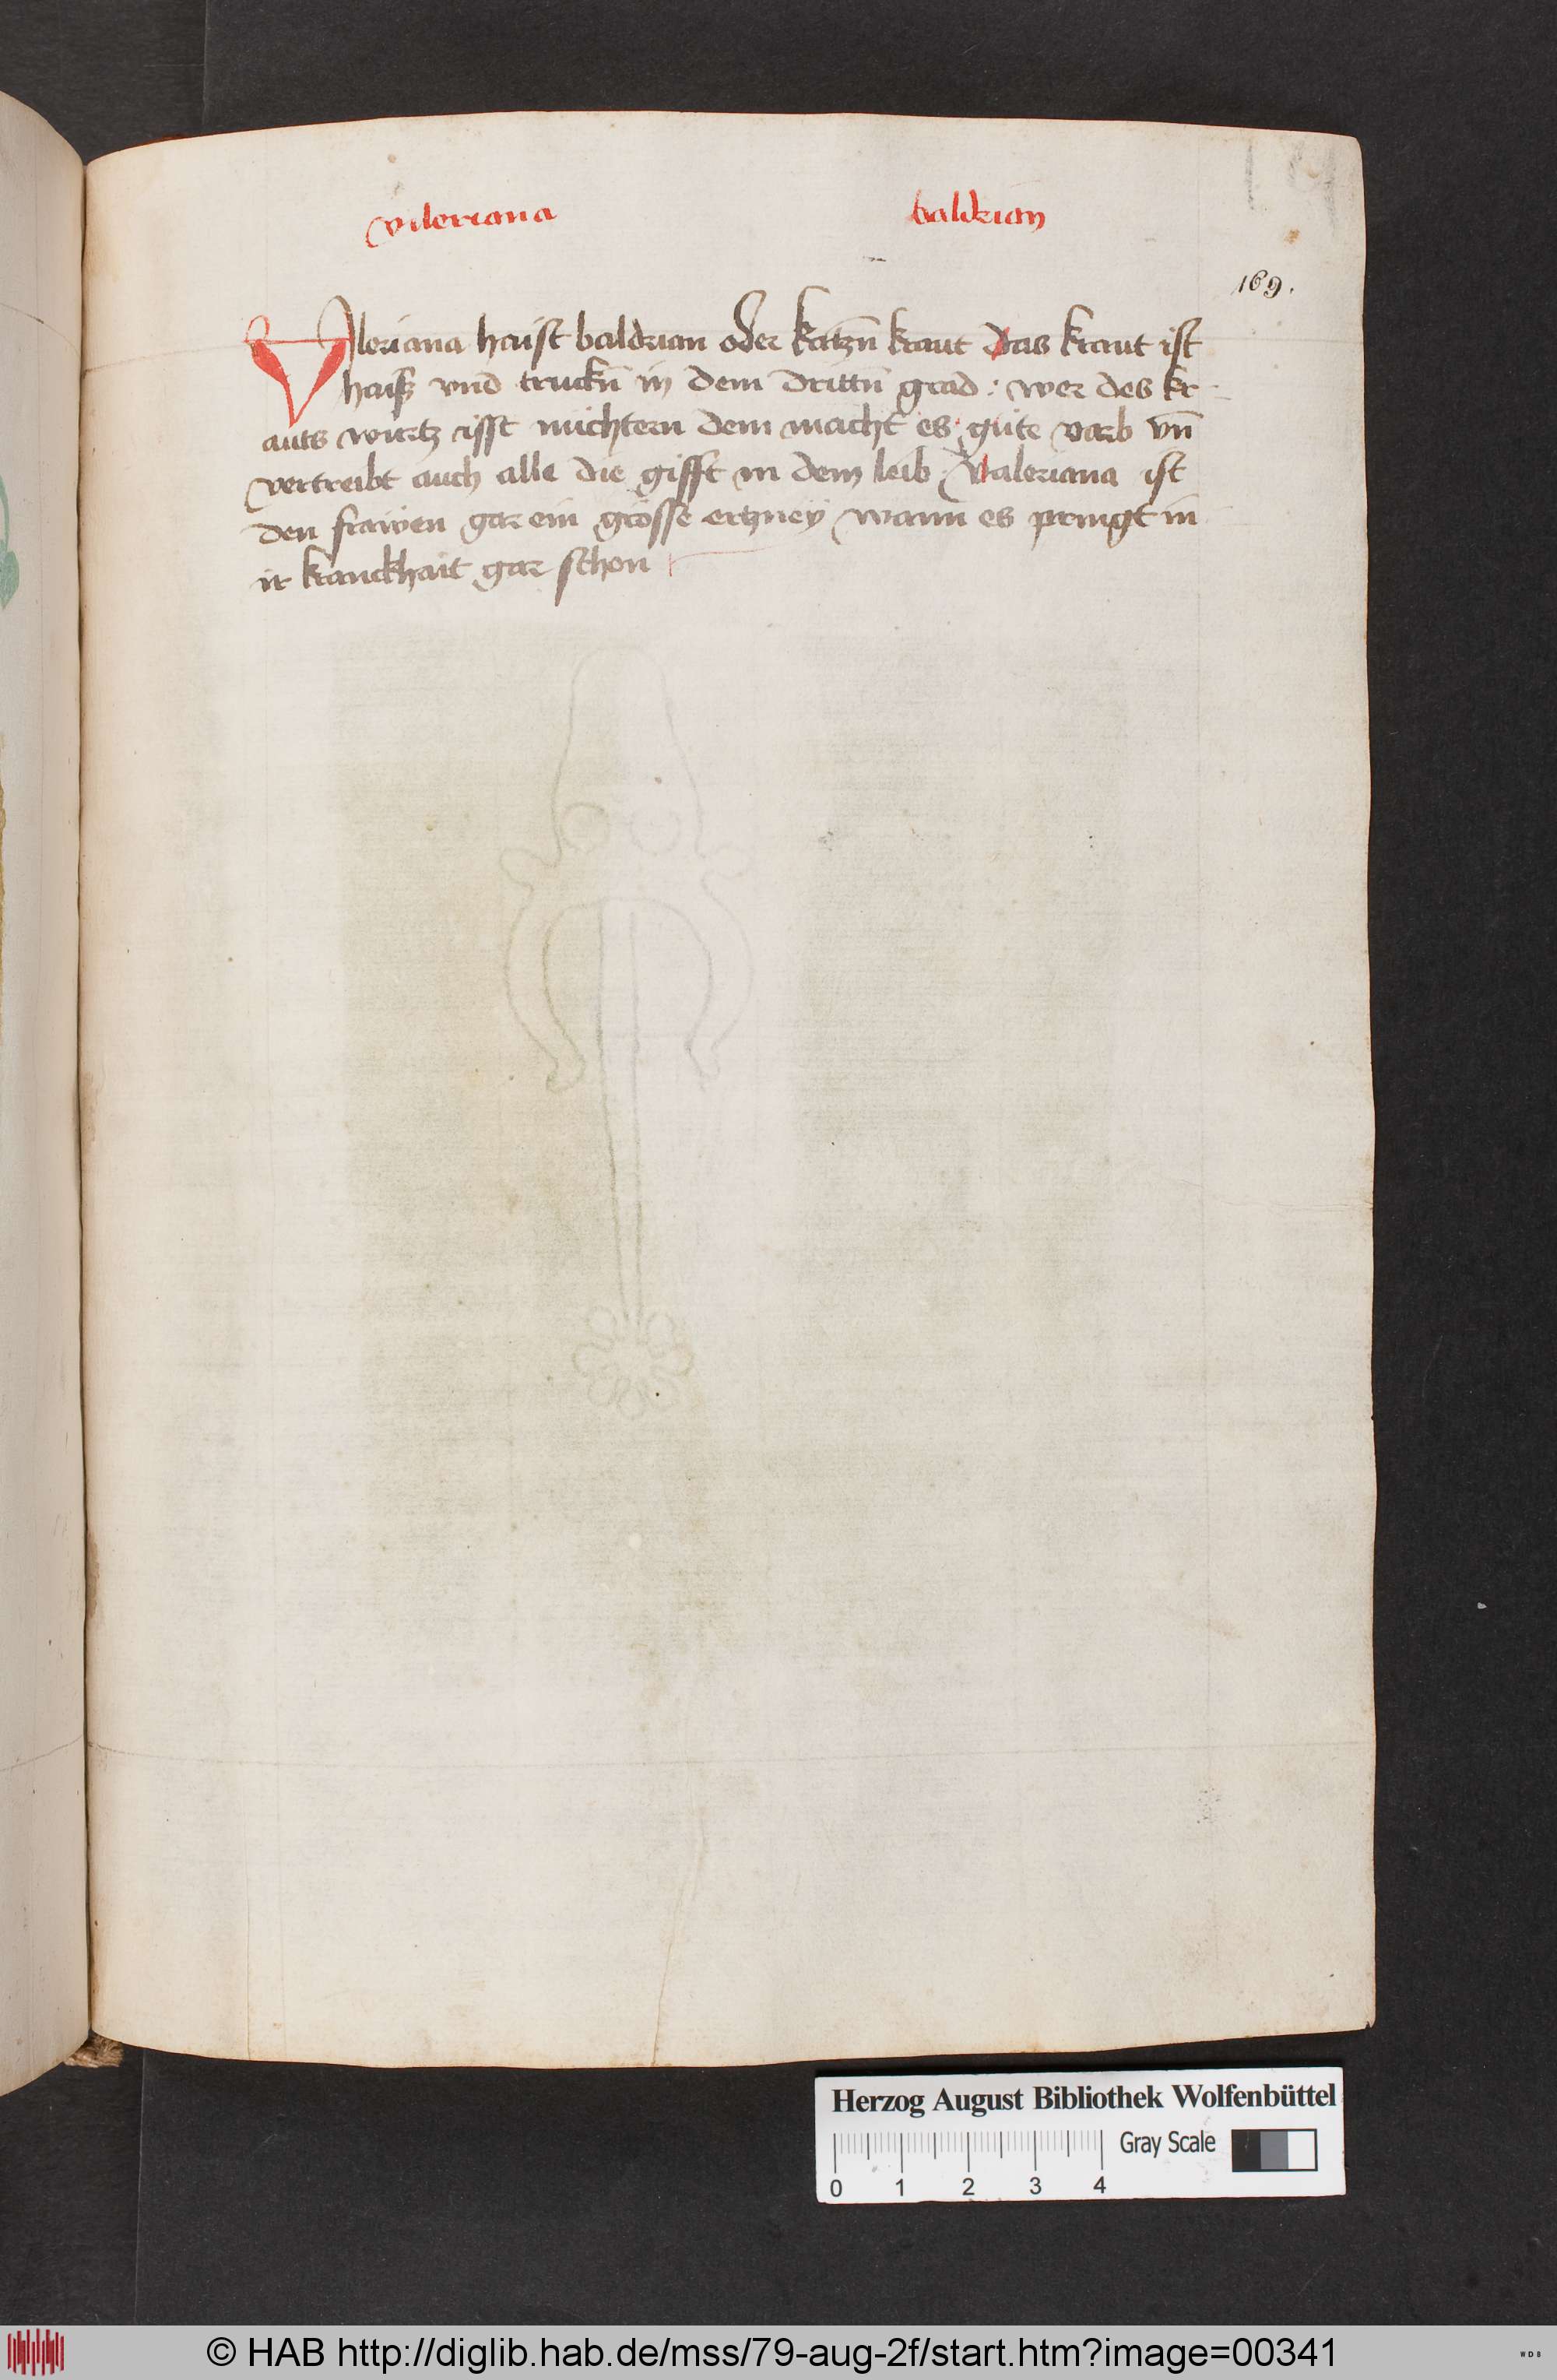 valeriana baldrian
169.
Valeriana haist baldrian oder katzn̄ kraut Das kraut ist
haisz vnd truckn̄ in dem drittn̄ grad : wer des kr-
auts wurtz isst nüchtern dem macht es güte varb vn̄
vertreibt auch alle die gifft in dem leib Valeriana ist
den frawen gar ein grosse ertzney wann es pringt in
ir kranckhait gar schon
Herzog August Bibliothek Wolfenbüttel
Gray Scale
0 1 2 3 4
© HAB http://diglib.hab.de/mss/79-aug-2f/start.htm?image=00341
WDB